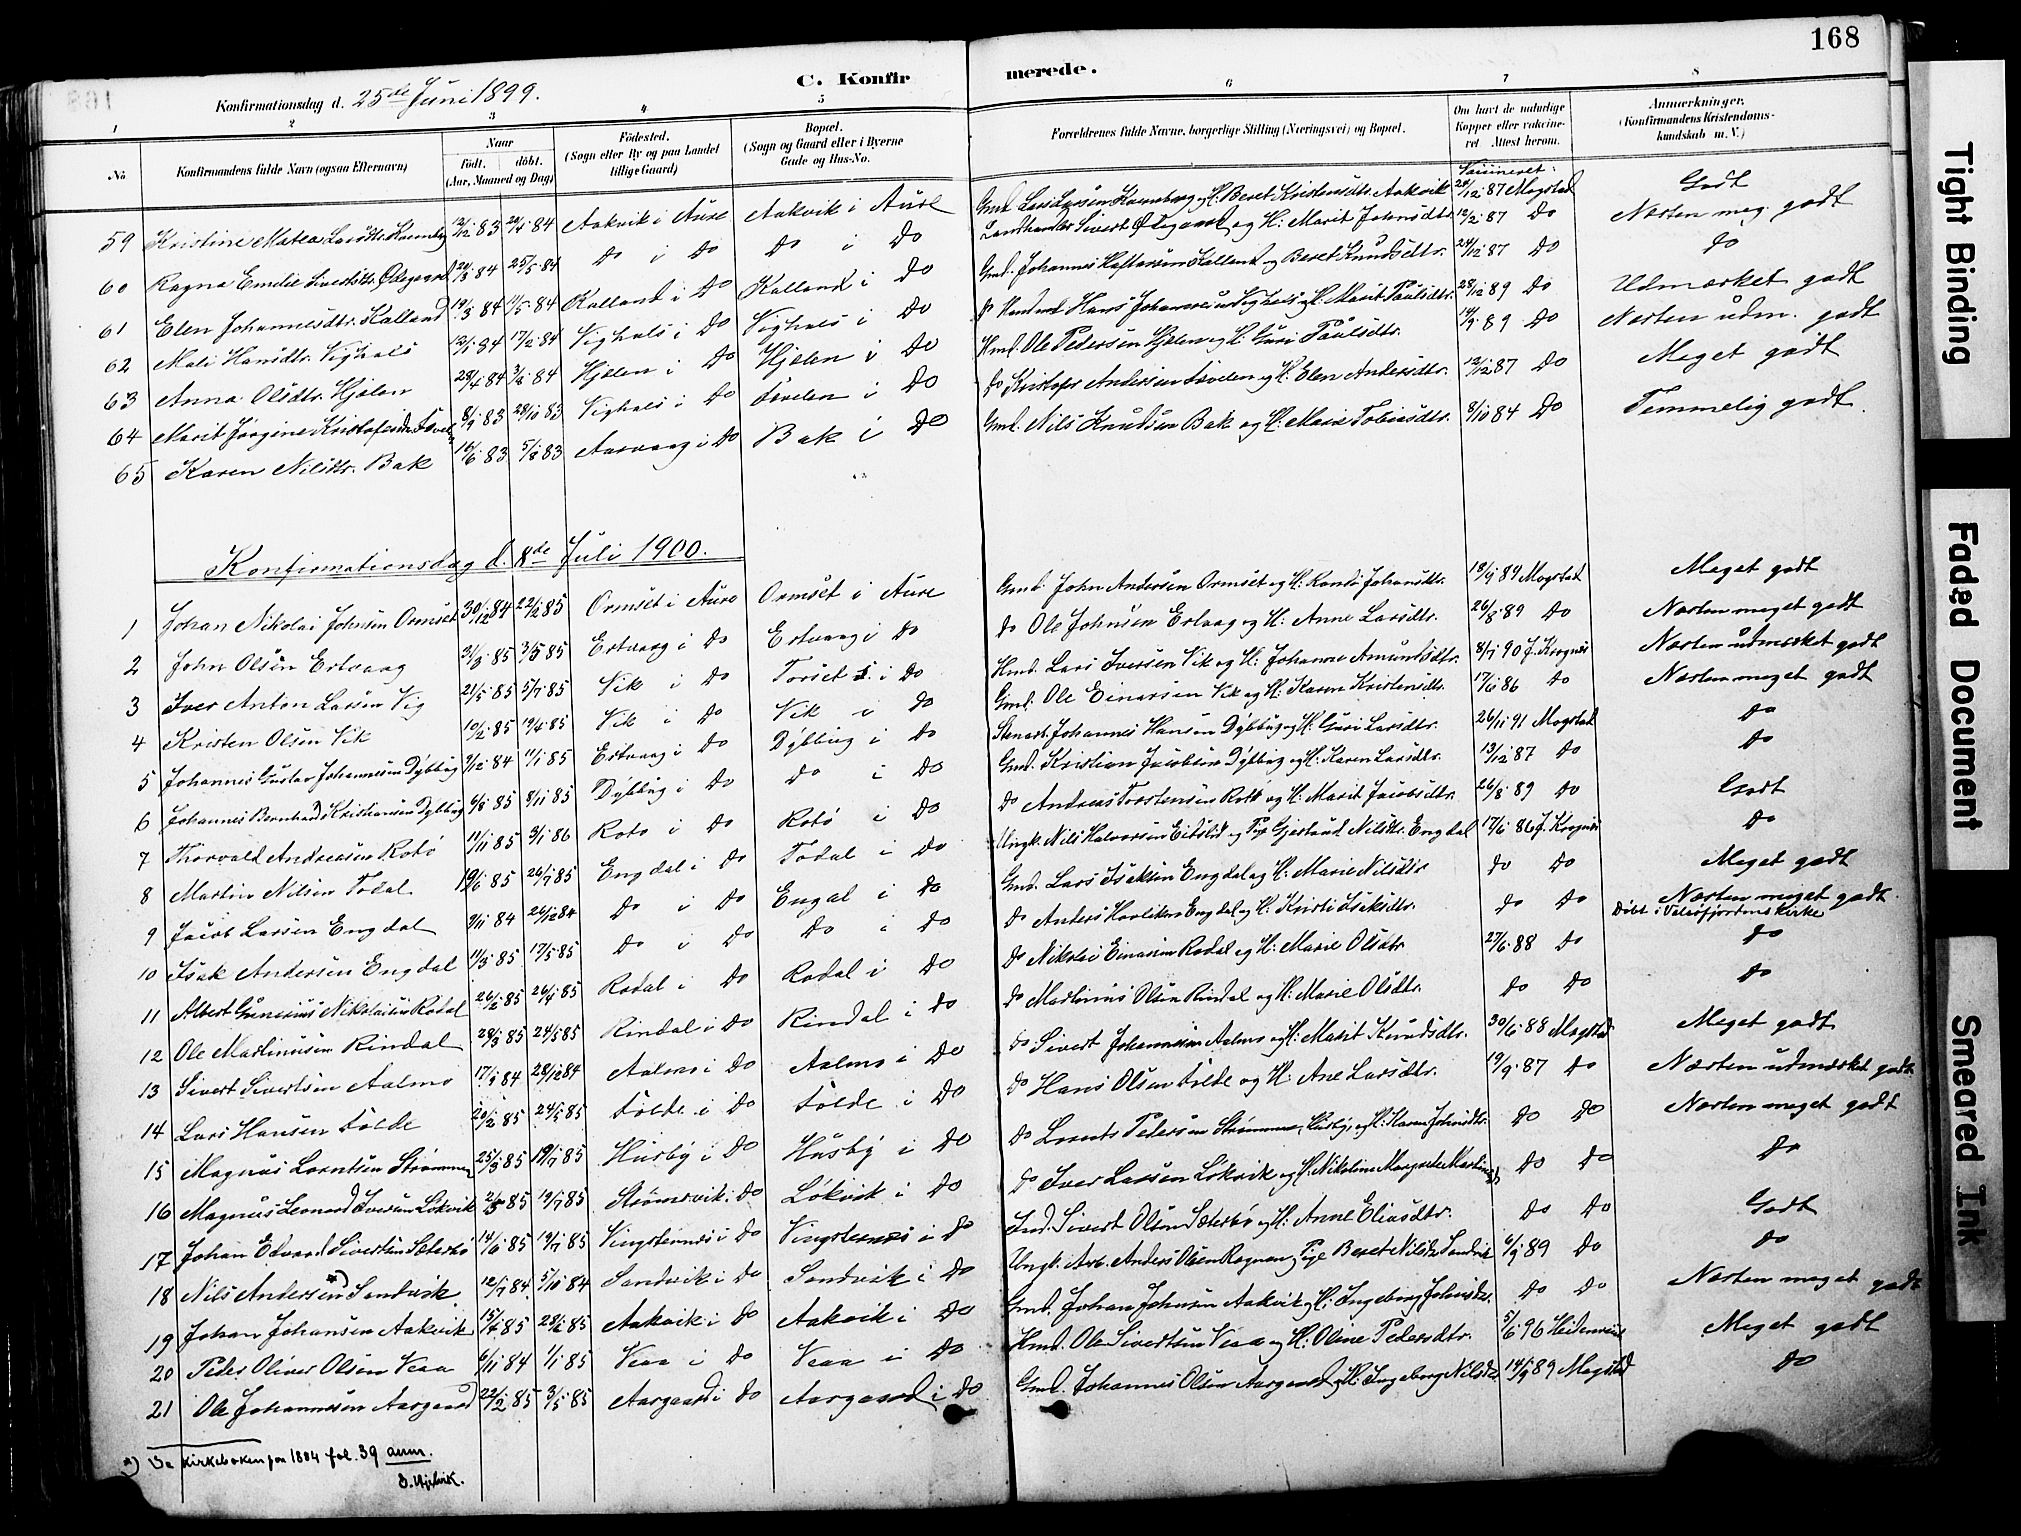 168
C. Konfirmerede.
Konfirmationsdag d. 25de Juni 1899.
1 2 3 4 5 6 7 8
No
Konfirmandens fulde Navn (ogsaa Efternavn)
Naar
Født. døbt.
(Aar, Maaned og Dag)
Fødested.
(Sogn eller By og paa Landet
tillige Gaard)
Bopæl.
(Sogn og Gaard eller i Byerne
Gade og Hus-No.
Forældrenes fulde Navne, borgerlige Stilling (Næringsvei) og Bopæl.
Om havt de naturlige
Kopper eller vakcine-
ret. Attest herom.
Anmærkninger.
(Konfirmandens Kristendoms-
kundskab m. V.)
59 Kristine Matea Larsdtr. 12/12 83 20/4 84 Aakvik i Aure Aakvik i Aure Gmd. Lars Larsen og H. Beret Kristensdtr. Aakvik 24/12 87 Mogstad Godt
60 Ragna Emilie Sivertsdtr. Ødegaard 84 25/5 84 Do i Do Do i Do Landhandler Sivert Ødegaard og H. Marit Johnsdtr. 12/2 87 Do Næsten meg. godt
61 Elen Johannesdtr. Kalland 19/3 84 11/5 84 Kalland i Do Kalland i Do Gmd. Johannes Kalland og Beret Knudsdtr. 24/12 87 Do Do
62 Mali Hansdtr. Vighals 12/1 84 17/2 84 Vighals i Do Vighals i Do Do Hans Johannesen Vighals og H. Marit Paulsdtr. 28/12 89 Do Udmærket godt
63 Anna Olsdtr. Hjelen 28/4 84 84 Hjelen i Do Hjelen i Do Hmd. Ole Pedersen Hjelen og H. Guri Paulsdtr. 14/9 89 Do Næsten udm. godt
64 Marit Jørgine 8/9 83 28/10 83 Vighals i Do i Do Do Kristofer Andersen og H. Elen Andersdtr. 12/12 87 Do Meget godt
65 Karen Nilsdtr. Bak 16/6 83 5/8 83 Aarvaag i Do Bak i Do Gmd. Nils Knudsen Bak og H. Marie Tobiasdtr. 8/10 84 Do Temmelig godt
Konfirmationsdag d. 8de Juli 1900.
1 Johan Nikolai Johnsen Ormset 30/12 84 22/2 85 Ormset i Aure Ormset i Aure Gmd. John Andersen Ormset og H. Randi Johansdtr. 19/9 89 Mogstad Meget godt
2 John Olsen Ertvaag 31/3 85 3/5 85 Ertvaag i Do Ertvaag i Do Do Ole Johnsen Ertvaag og H. Anne Larsdtr. 26/8 89 Do Næsten meget godt
3 Iver Anton Larsen Vig 21/5 85 5/7 85 Vik i Do Torset i Do Hmd. Lars Iversen Vik og H. Johanne Amundsdtr. 8/7 90 J. Krognes Næsten udmærket godt
4 Kristen Olsen Vik 10/2 85 19/4 85 Vik i Do Vik i Do Gmd. Ole Einarsen Vik og H. Karen Kristensdtr. 17/6 86 Do Næsten meget godt
5 Johannes Gustav Johannesen Dybbug 9/12 84 11/1 85 Ertvaag i Do Dybbug i Do Johannes Hansen Dybbug og H. Guri Larsdtr. 26/11 91 Mogstad Do
6 Johannes Bernhard Kristiansen Dybbug 6/8 85 8/11 85 Dybbug i Do Do i Do Gmd. Kristian Jacobsen Dybbug og H. Karen Larsdtr. 13/12 87 Do Do
7 Thorvald Andreasen Rotø 11/11 85 3/1 86 Roto i Do Rotø i Do Do Andreas Torstensen Rotø og H. Marit Jacobsdtr. 26/8 89 Do Godt
8 Martin Nilsen Todal 19/6 85 26/7 85 Engdal i Do Todal i Do Ungk. Nils Halvorsen Eidslid og Pige Gjertrud Nilsdtr. Engdal 17/6 86 J. Krognes Do
9 Jacob Larsen Engdal 9/11 84 26/12 84 Do i Do Engdal i Do Gmd. Lars Isaksen Engdal og H. Marie Nilsdtr Do Do Meget godt
10 Isak Andersen Engdal 11/3 85 17/5 85 Do i Do Do i Do Do Anders Engdal og H. Kristi Isaksdtr. Do Do Næsten meget godt. Døbt i Valsøfjordens Kirke
11 Albert Nikolaisen Rodal 26/2 85 26/4 85 Rodal i Do Rodal i Do Do Nikolai Einarsen Rodal og H. Marie Olsdtr 27/6 88 Do Do
12 Ole Martinusen Rindal 28/3 85 24/5 85 Rindal i Do Rindal i Do Do Martinus Olsen Rindal og H. Marie Olsdtr. Do Do Do
13 Sivert Sivertsen Aalmo 17/9 84 28/12 84 Aalmo i Do Aalmo i Do Do Sivert Johannesen Aalmo og H. Marit Knudsdtr. 30/6 88 Mogstad Meget godt
14 Lars Hansen Folde 20/2 85 24/5 85 Folde i Do Folde i Do Do Hans Olsen Folde og H. Ane Larsdtr. 19/9 87 Do Næsten udmærket godt
15 Magnus Lorntsen Strømmen 25/3 85 19/7 85 Husby i Do Husby i Do Do Lorents Pedersen Strømmen, Husby, og H. Karen Johnsdtr. Do Do Næsten meget godt
16 Magnus Leonard Iversen Løkvik 2/5 85 19/7 85 Strømsvik i Do Løkvik i Do Do Iver Larsen Løkvik og H. Nikoline Margrete Do Do Do
17 Johan Edvard Sivertsen Sæterbø 14/6 85 19/7 85 Vingsternes i Do Vingsternes i Do Ind. Sivert Olsen Sæterbø og H. Anne Eliasdtr. Do Do Godt
18 Nils Andersen *) Sandvik 12/7 84 5/10 84 Sandvik i Do Sandvik i Do Ungk. Arb. Anders Olsen og Pige Beret Nilsdtr Sandvik 6/9 89 Do Do
19 Johan Johansen Aakvik 15/4 85 28/6 85 Aakvik i Do Aakvik i Do Gmd. Johan Johnsen Aakvik og H. Ingeborg Johnsdtr. Do Do Næsten meget godt
20 Peder Oliver Olsen Veaa 6/11 84 1/1 85 Veaa i Do Veaa i Do Hmd. Ole Sivertsen Veaa og H. Oline Pedersdtr. 5/6 96 Meget godt
21 Ole Johannesen Aargaard 22/2 85 3/5 85 Aargaard i Do Aargaard i Do Gmd. Johannes Olsen Aargaard og H. Ingeborg Nilsdtr. 14/9 89 Mogstad Do
*) Se kirkeboken for 1884 fol. 39 anm.
Tight Binding
Faded Document
Smeared Ink